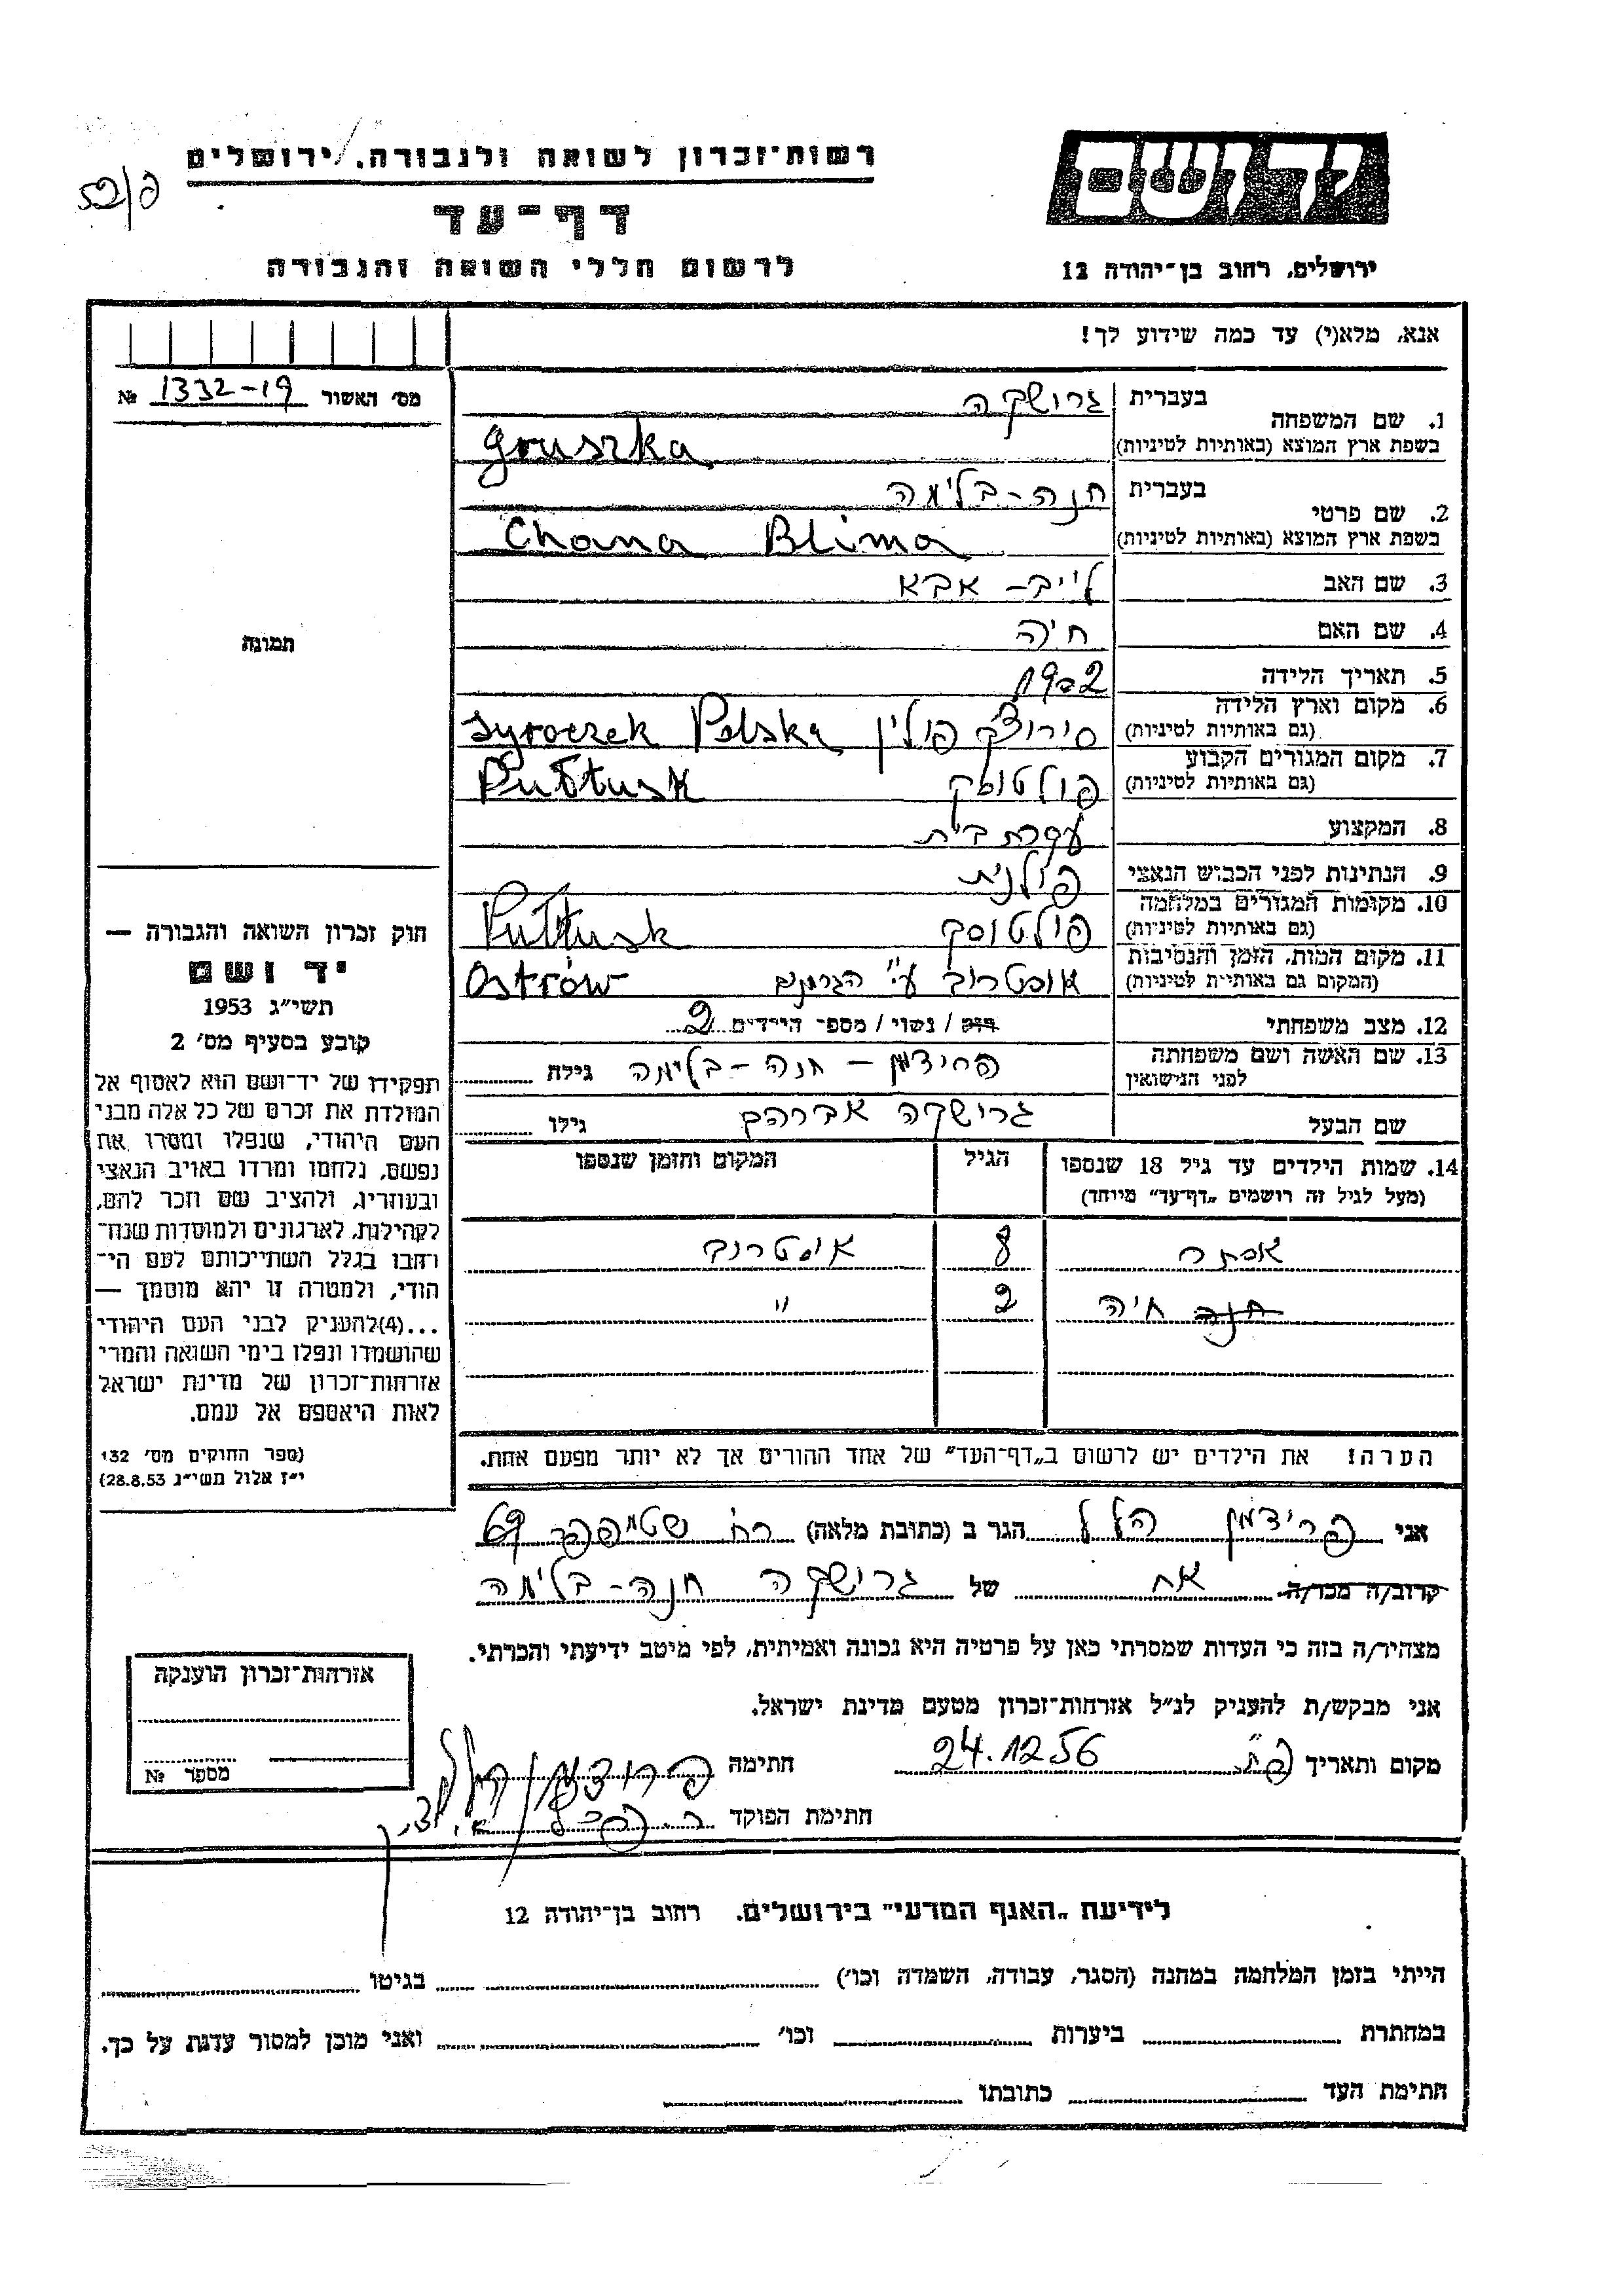 רשות־זכרון לשואה ולגבורה, ירושלים
דף־עד
לרשום חללי השואה והגבורה
יד ושם
ירושלים, רחוב בן־יהודה 12
אנא, מלא(י) עד כמה שידוע לך!
מס' האשור 1332-19 №
תמונה
חוק זכרון השואה והגבורה —
יד ושם
תשי״ג 1953
קובע בסעיף מס' 2
תפקידו של יד־ושם הוא לאסוף אל
המולדת את זכרם של כל אלה מבני
העם היהודי, שנפלו ומסרו את
נפשם, נלחמו ומרדו באויב הנאצי
ובעוזריו, ולהציב שם וזכר להם,
לקהילות, לארגונים ולמוסדות שנח־
רחבו בגלל השתייכותם לעם הי־
הודי, ולמטרה זו יהא מוסמך —
...(4)להעניק לבני העם היהודי
שהושמדו ונפלו בימי השואה והמרי
אזרחות־זכרון של מדינת ישראל
לאות היאספם אל עמם.
(ספר החוקים מס' 132
י״ז אלול תשי״ג 28.8.53)
1. שם המשפחה
בעברית גרושקה
בשפת ארץ המוצא (באותיות לטיניות) Gruszka
2. שם פרטי
בעברית חנה-בלימה
בשפת ארץ המוצא (באותיות לטיניות) Chana Blima
3. שם האב לייב- אבא
4. שם האם חיה
5. תאריך הלידה 1902
6. מקום וארץ הלידה
(גם באותיות לטיניות) סירוצק פולין Syroczek Polska
7. מקום המגורים הקבוע
(גם באותיות לטיניות) פולטוסק Pułtusk
8. המקצוע עקרת בית
9. הנתינות לפני הכבוש הנאצי פולנית
10. מקומות המגורים במלחמה
(גם באותיות לטיניות) פולטוסק Pułtusk
11. מקום המות, הזמן והנסיבות
(המקום גם באותיות לטיניות) אוסטרוב ע״י הגרמנים Ostrów
12. מצב משפחתי רוק / נשוי / מספר הילדים 2
13. שם האשה ושם משפחתה
לפני הנישואין פרידמן - חנה-בלימה גילה
שם הבעל גרושקה אברהם גילו
14. שמות הילדים עד גיל 18 שנספו
(מעל לגיל זה רושמים „דף־עד״ מיוחד)
הגיל
המקום והזמן שנספו
אסתר 8 אוסטרוב
חנה חיה 2 ״
הערה! את הילדים יש לרשום ב„דף־העד״ של אחד ההורים אך לא יותר מפעם אחת.
אני פרידמן הלל הגר ב (כתובת מלאה) רח' שטמפפר 69
קרוב/ה מכר/ה אח של גרושקה חנה-בלימה
מצהיר/ה בזה כי העדות שמסרתי כאן על פרטיה היא נכונה ואמיתית, לפי מיטב ידיעתי והכרתי.
אני מבקש/ת להעניק לנ״ל אזרחות־זכרון מטעם מדינת ישראל.
מקום ותאריך פ״ת 24.12.56 חתימה פרידמן הלל
חתימת הפוקד
אזרחות־זכרון הוענקה
מספר №
לידיעת „האגף המדעי״ בירושלים. רחוב בן־יהודה 12
הייתי בזמן המלחמה במחנה (הסגר, עבודה, השמדה וכו') בגיטו
במחתרת ביערות וכו' ואני מוכן למסור עדות על כך.
חתימת העד כתובתו